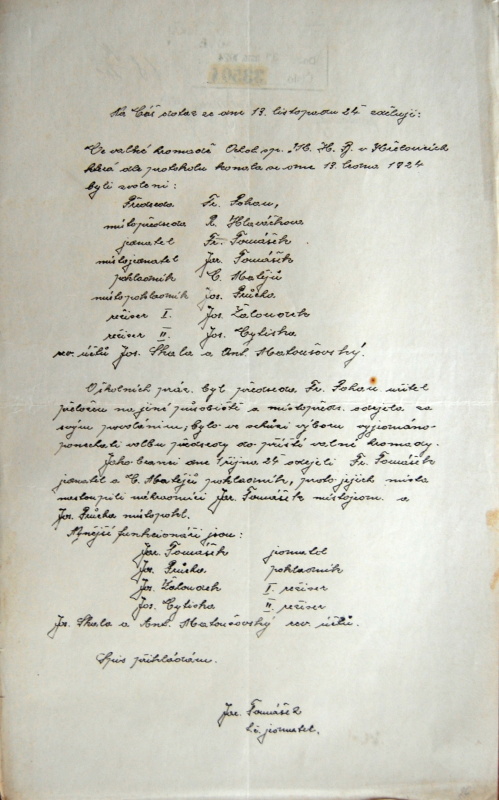 33504
Na Váš dotaz ze dne 13. listopadu 24 sděluji:
Ve valné hromadě Odb. sp. M. H. B. v Hošťovicích
která dle protokolu konala se dne 13. ledna 1924
byli zvoleni:
Předseda Fr. Pohan,
místopředseda R. Hlaváčková
jednatel Fr. Tomášek.
místojednatel Jar. Tomášek
pokladník C. Matějů
místopokladník Jos. Průcha
režiser I. Jos. Žaloudek
režiser II. Jos. Cyliška
rev. účtů Jos. Skala a Ant. Matoušovský.
O školních práz. byl předseda Fr. Pohan učitel
přeložen na jiné působiště a místopředs. odejela za
svým povoláním, bylo ve schůzi výboru
ponechati volbu předsedy do příští valné hromady.
Jako branci dne 1 října 24 odejeli Fr. Tomášek
jednatel a C. Matějů pokladník, proto jejich místa
nastoupili náhradníci Jar. Tomášek místojedn. a
Jos. Průcha místopokl.
Nynější funkcionáři jsou:
Jar. Tomášek jednatel
Jos. Průcha pokladník
Jos. Žaloudek I. režiser
Jos. Cyliška II. režiser
Jos. Skala a Ant. Matoušovský rev. účtů.
Spis přikládám.
Jar. Tomášek
t.č. jednatel.